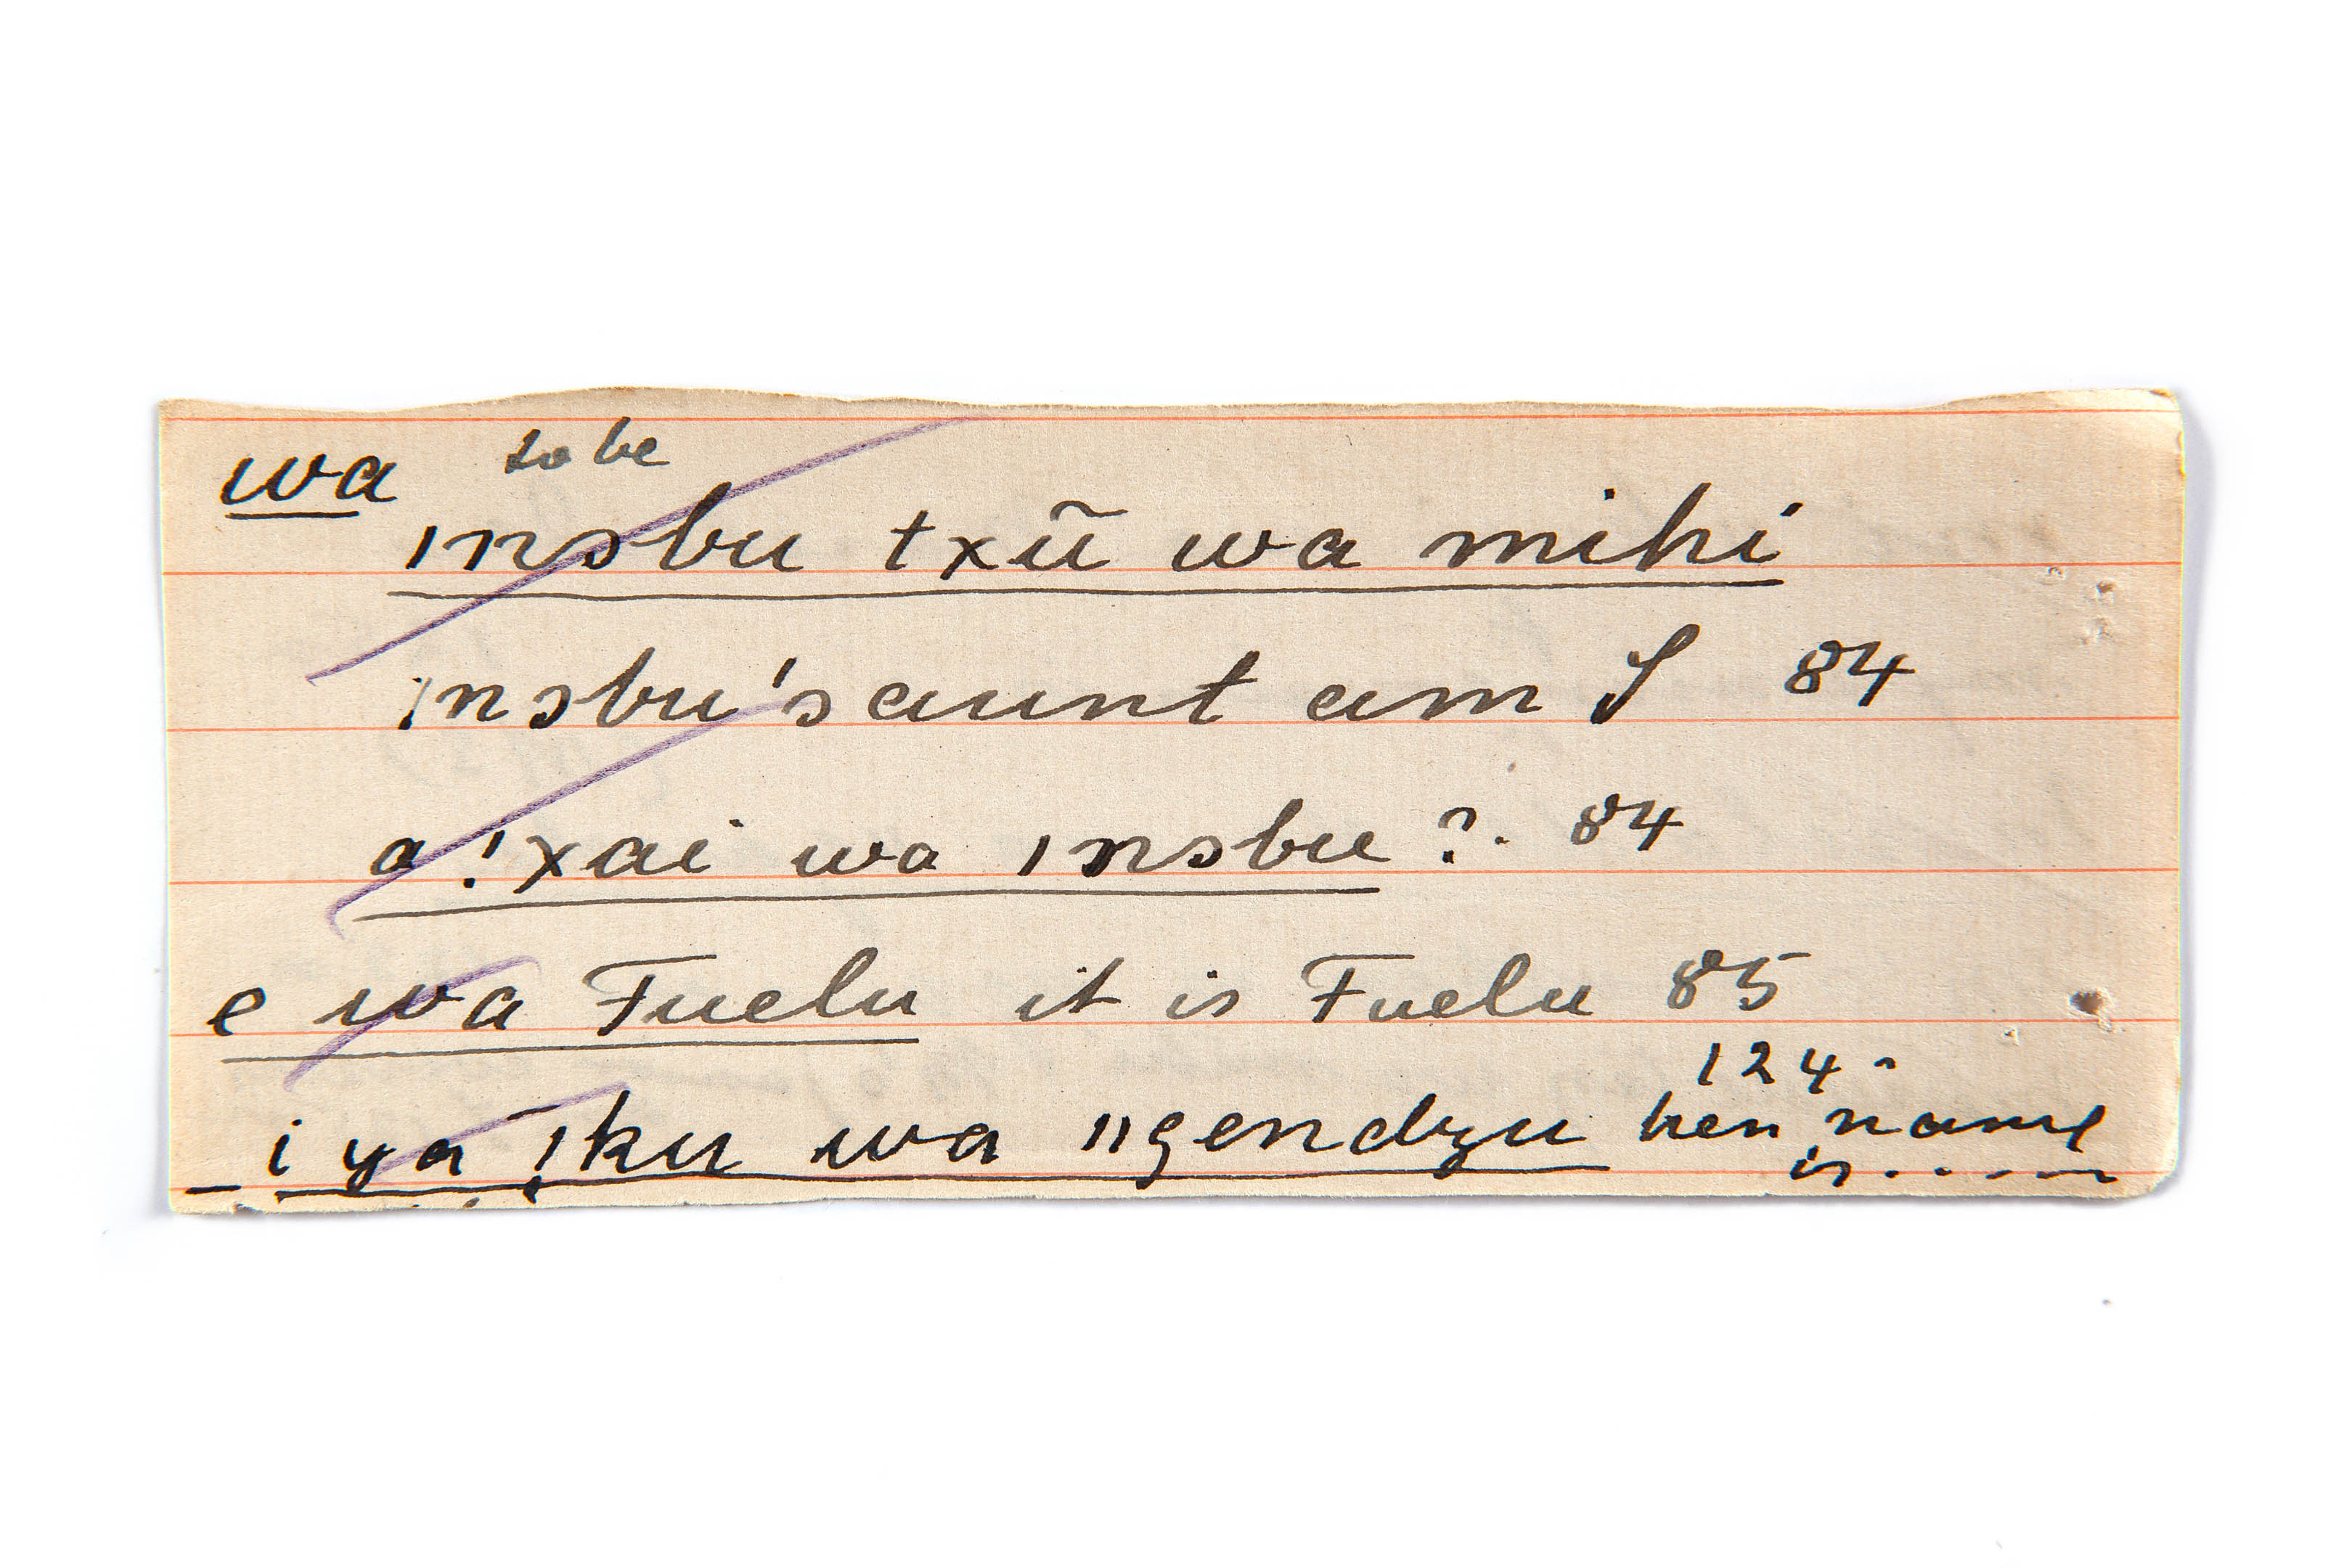 wa to be
ınsbu txũ wa mihi
ınsbu's aunt am I 84
a !xai wa ınsbu ?. 84
e wa Fuelu it is Fuelu 85
124.
i ya !ku wa ngendzu her name
is.....